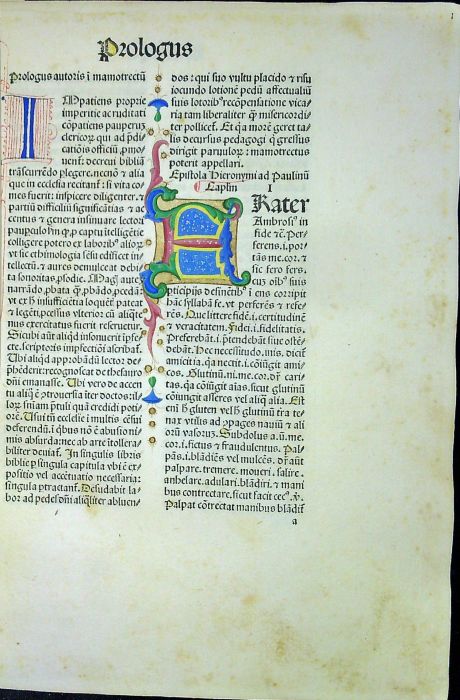 Prologus
Prologus autoris ī mamotrectū
IMpatiens proprie
imperitie ac ruditati
cōpatiens pauperuꝫ
clericoꝝ qui ad p̄di-
cationis officiū ꝓmo
uent᷑: decreui bibliā
trāscurrēdo ꝑlegere. necnō ⁊ alia
que in ecclesia recitant᷑: si vita co-
mes fuerit: inspicere diligenter. ⁊
partiū difficiliū significatiās ⁊ ac
centus ⁊ genera insinuare lectori
pauꝑculo
colligere potero ex laboribꝰ alioꝝ
vt sic ethimologia sēsū edificet in-
tellectū. ⁊ aures demulceat debi-
ta sonoritas ꝓsodie.
narrādo, ꝓbata
vt ex
⁊ legēti. ꝑcessus vlterior cū aliqñ-
nus exercitatus fuerit reseruetur.
Sicubi aūt aliqd insonuerit ipse-
cte. scriptoris impfectiōi ascribat᷑.
Ubi aliqd approbādū lector de-
p̄hēderit: recognoscat de thesauro
dn̄i emanasse. Ubi vero de accen
tu aliq̄ ē ꝯtrouersia iter doctos: il-
loꝝ sn̄iam p̄tuli qua credidi poti-
orē. Usui tn̄ ecclesie ī multis cēsui
deferendū. ī qbus nō ē abusio ni-
mis absurda: nec ab arte itollera-
biliter deuiat᷑. In singulis libris
biblie ꝑ singula capitula vbi ē ex-
positio vel accētuatio necessaria:
singula ꝑtractant᷑. Desudabit la-
bor ad pedes dn̄i aliqliter abluen-
dos: qui suo vultu placido ⁊ risu
iocundo lotionē pedū affectualiū
suis lotoribꝰ recōpensatione vica-
ria tam liberaliter q̄ misericordi-
ter pollicet᷑. Et qa morē geret ta-
lis decursus pedagogi q̄ gressus
dirigit paruuloꝝ: mamotrectus
poterit appellari.
Epistola Hieronymi ad Paulinū
Caplm I
FRater
Ambrosiꝰ in
fide ⁊c̄. Per-
ferens. i. por-
tās me. cor. ⁊
sic fero fers.
cuꝫ oībꝰ suis
pticipijs desinētibꝰ ī ens corripit
hāc syllabā fe. vt perferēs ⁊ refe-
rēs. Que littere fidē. i. certitudinē
⁊ veracitatem. Fidei. i. fidelitatis.
Preferebāt. i. p̄tendebāt siue oste-
debāt. Hec necessitudo. inis. dicit᷑
amicitia. qa necit. i. cōiūgit ami-
cos. Glutinū. ni. me. cor. dr̄ cari-
tas. qa cōiūgit aīas. sicut glutinū
cōiungit asseres vel aliq alia. Est
eni ꝉ gluten vel ꝉ glutinū ita te-
nax vtilis ad ꝯpages nauiū ⁊ ali
orū vasoruꝫ. Subdolus a. ū. me.
cor. i. fictus ⁊ fraudulentus. Pal-
pās. i. blādiēs vel mulcēs. dr̄ aūt
palpare. tremere. moueri. salire.
anhelare. adulari. blādiri. ⁊ mani
bus contrectare. sicut facit cecꝰ. v̄.
Palpat cōtrectat manibus blādit᷑
a